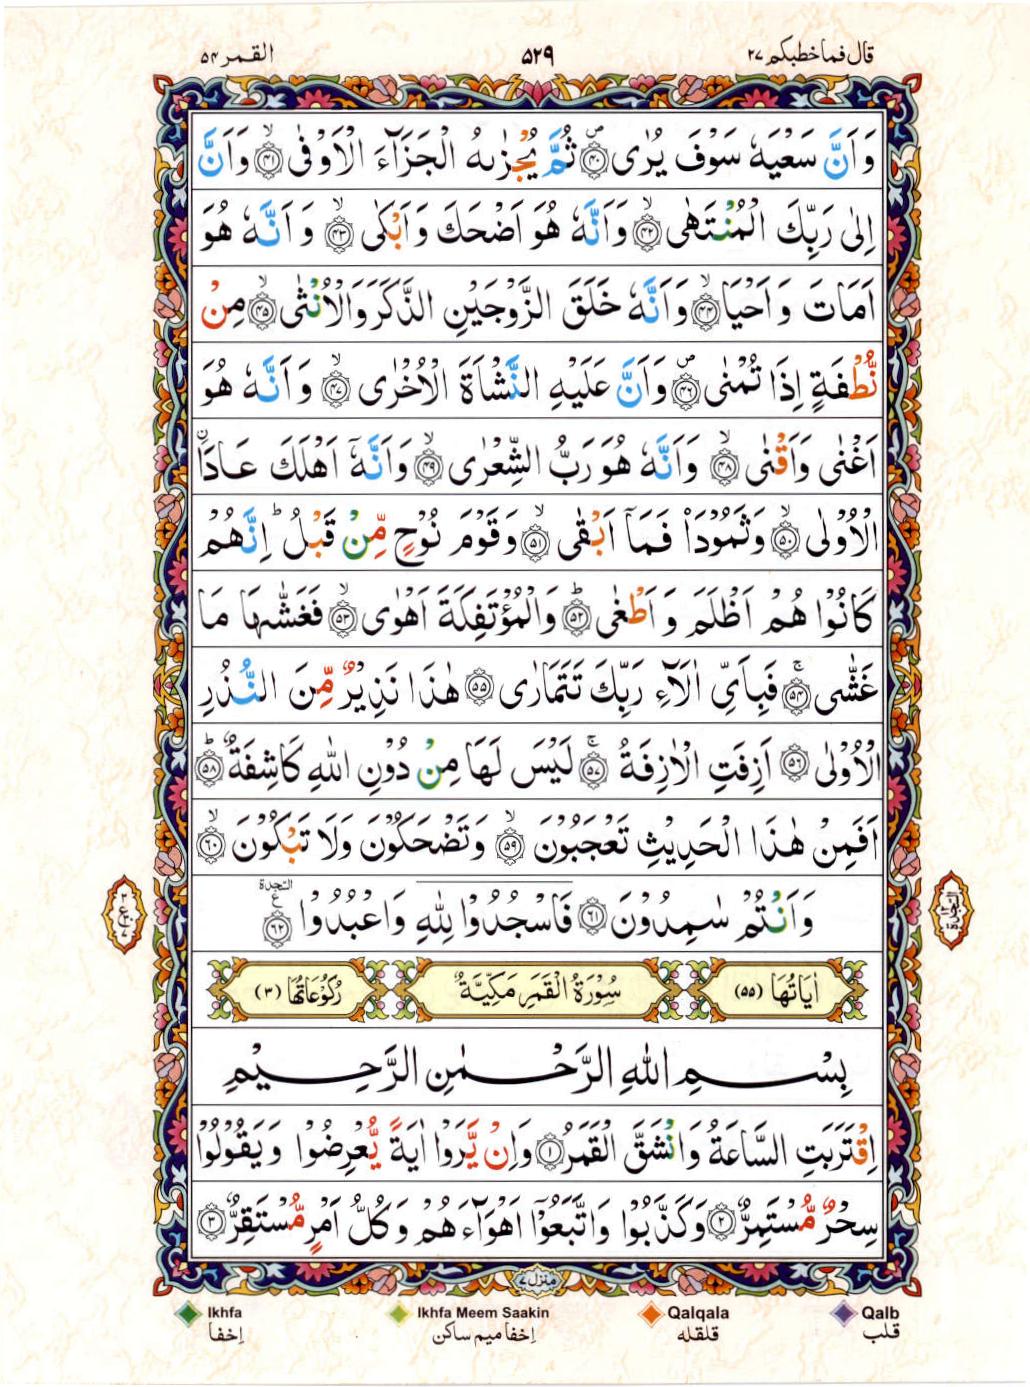 قال فما خطبكم ٢٧
٥٢٩
القمر ٥٤
وَاَنَّ سَعْيَهٗ سَوْفَ يُرٰى ۪﴿۴۰﴾ ثُمَّ يُجْزٰىهُ الْجَزَآءَ الْاَوْفٰى ۙ﴿۴۱﴾ وَاَنَّ
اِلٰى رَبِّكَ الْمُنْتَهٰى ۙ﴿۴۲﴾ وَاَنَّهٗ هُوَ اَضْحَكَ وَاَبْكٰى ۙ﴿۴۳﴾ وَاَنَّهٗ هُوَ
اَمَاتَ وَاَحْيَا ۙ﴿۴۴﴾ وَاَنَّهٗ خَلَقَ الزَّوْجَيْنِ الذَّكَرَ وَالْاُنْثٰى ۙ﴿۴۵﴾ مِنْ
نُّطْفَةٍ اِذَا تُمْنٰى ۪﴿۴۶﴾ وَاَنَّ عَلَيْهِ النَّشْاَةَ الْاُخْرٰى ۙ﴿۴۷﴾ وَاَنَّهٗ هُوَ
اَغْنٰى وَاَقْنٰى ۙ﴿۴۸﴾ وَاَنَّهٗ هُوَ رَبُّ الشِّعْرٰى ۙ﴿۴۹﴾ وَاَنَّهٗۤ اَهْلَكَ عَادَاۨ
الْاُوْلٰى ۙ﴿۵۰﴾ وَثَمُوْدَا۟ فَمَاۤ اَبْقٰى ۙ﴿۵۱﴾ وَقَوْمَ نُوْحٍ مِّنْ قَبْلُ ؕ اِنَّهُمْ
كَانُوْا هُمْ اَظْلَمَ وَاَطْغٰى ؕ﴿۵۲﴾ وَالْمُؤْتَفِكَةَ اَهْوٰى ۙ﴿۵۳﴾ فَغَشّٰىهَا مَا
غَشّٰى ۚ﴿۵۴﴾ فَبِاَىِّ اٰلَآءِ رَبِّكَ تَتَمَارٰى ﴿۵۵﴾ هٰذَا نَذِيْرٌ مِّنَ النُّذُرِ
الْاُوْلٰى ﴿۵۶﴾ اَزِفَتِ الْاٰزِفَةُ ۚ﴿۵۷﴾ لَيْسَ لَهَا مِنْ دُوْنِ اللّٰهِ كَاشِفَةٌ ؕ﴿۵۸﴾
اَفَمِنْ هٰذَا الْحَدِيْثِ تَعْجَبُوْنَ ۙ﴿۵۹﴾ وَتَضْحَكُوْنَ وَلَا تَبْكُوْنَ ۙ﴿۶۰﴾
وَاَنْتُمْ سٰمِدُوْنَ ﴿۶۱﴾ فَاسْجُدُوْا لِلّٰهِ وَاعْبُدُوْا ﴿۶۲﴾ السجدة ع
السجدة ١٢
اٰيَاتُهَا (۵۵)
سُوْرَةُ الْقَمَرِ مَكِّيَّةٌ
رُكُوْعَاتُهَا (۳)
بِسْمِ اللّٰهِ الرَّحْمٰنِ الرَّحِيْمِ
اِقْتَرَبَتِ السَّاعَةُ وَانْشَقَّ الْقَمَرُ ﴿۱﴾ وَاِنْ يَّرَوْا اٰيَةً يُّعْرِضُوْا وَيَقُوْلُوْا
سِحْرٌ مُّسْتَمِرٌّ ﴿۲﴾ وَكَذَّبُوْا وَاتَّبَعُوْۤا اَهْوَآءَهُمْ وَكُلُّ اَمْرٍ مُّسْتَقِرٌّ ﴿۳﴾
منزل ٧
Ikhfa
Ikhfa Meem Saakin
Qalqala
Qalb
اخفا
اخفا میم ساکن
قلقله
قلب